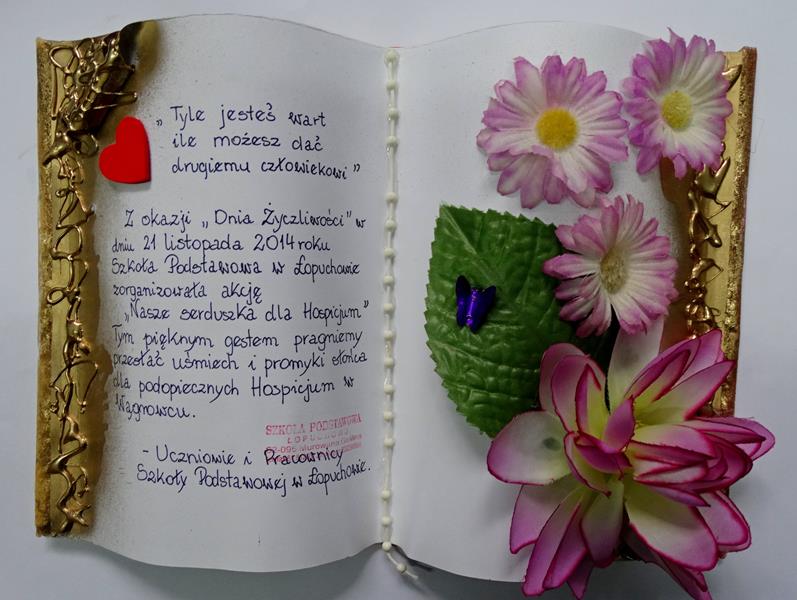 „Tyle jesteś wart
ile możesz dać
drugiemu człowiekowi”
Z okazji „Dnia Życzliwości” w
dniu 21 listopada 2014 roku
Szkoła Podstawowa w Łopuchowie
zorganizowała akcję
„Nasze serduszka dla Hospicjum”
Tym pięknym gestem pragniemy
przesłać uśmiech i promyki słońca
dla podopiecznych Hospicjum w
Wągrowcu.
SZKOŁA PODSTAWOWA
ŁOPUCHOWO
62-095 Murowana Goślina
- Uczniowie i Pracownicy
Szkoły Podstawowej w Łopuchowie.